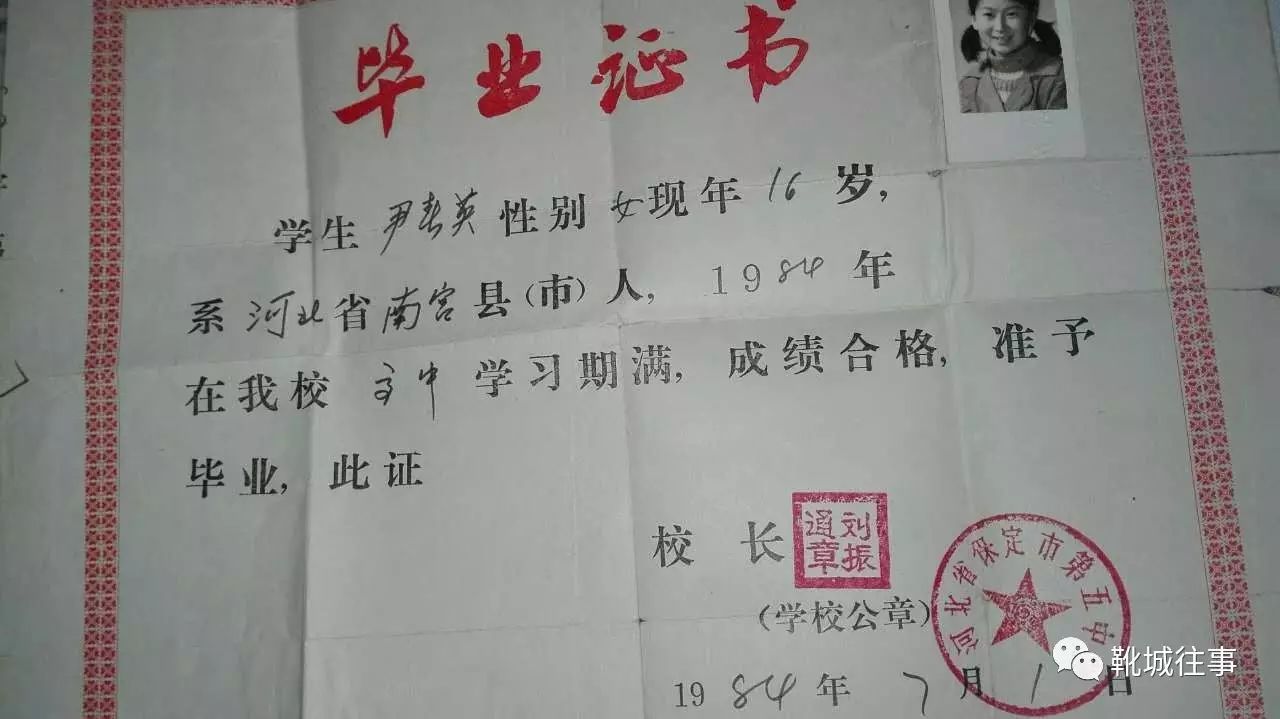 毕业证书
学生尹春英性别女现年16岁,
系河北省南宫县(市)人, 1984年
在我校高中学习期满, 成绩合格, 准予
毕业, 此证
校 长 刘振通章
(学校公章)
河北省保定市第五中
1984年7月1日
靴城往事